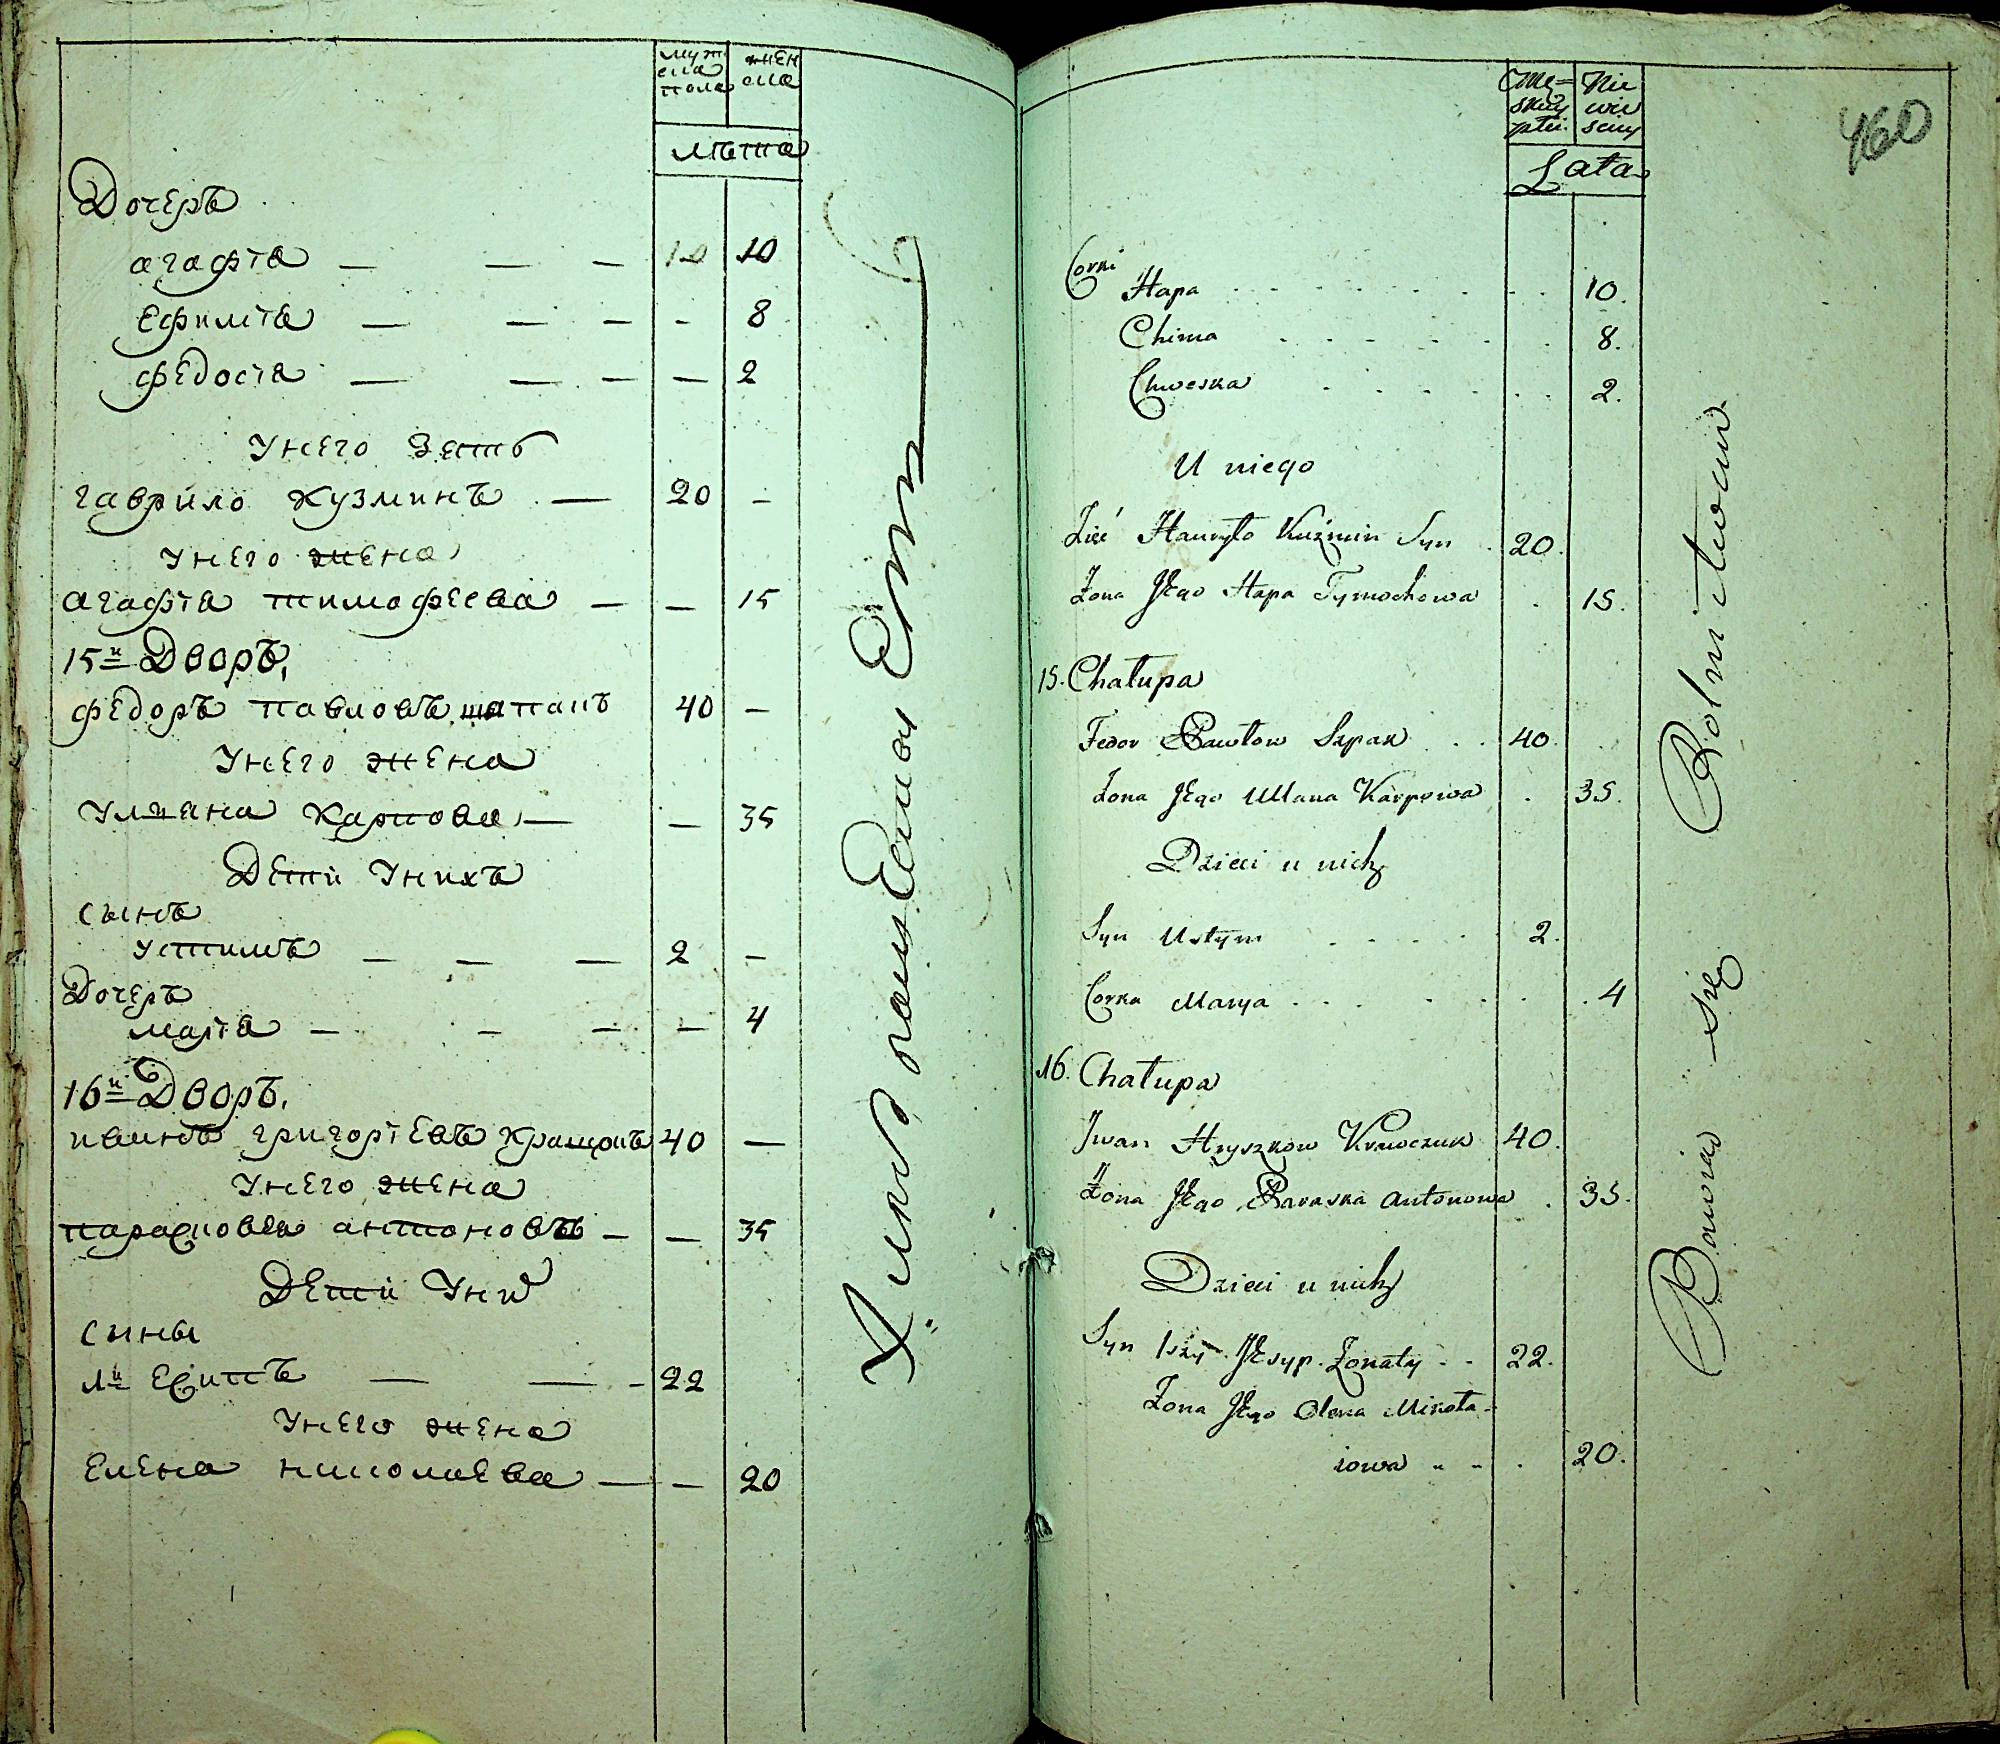 муж
ска
пола
жен
ска
лѣта
Дочерѣ
агафіа — — — 10 10
ефиміа — — — - 8
федосіа — — — — 2
У него зять
гаврило кузминъ — 20 —
У него жена
агафіа тимофеева — — 15
15й Дворъ,
федоръ павловъ шпакъ 40 —
У него жена
Улияна карпова — — 35
Дети У нихъ
сынъ
Устимъ — — — 2 —
Дочерь
маріа — — — — 4
16й Дворъ.
иванъ григоріевъ 40 —
У него жена
парасковея антоновa — — 35
Дети У ни
сыны
1й есипъ — — - 22
У него жена
елена николаева — — 20
Mę=
skiey
płci.
Nie
wie
sciey
Lata
460
Corki
Hapa 10.
Chima 8.
Chweska 2.
U niego
Zięć Hawryło Kuźmin Syn 20.
Żona Jego Hapa Tymochowa 15.
15. Chałupa
Fedor Pawłow Szpak 40.
Żona Jego Ullana Karpowa 35.
Dzieci u nich
Syn Ustym 2.
Corka Marya 4
16. Chałupa
Jwan Hryszkow 40.
Żona Jego Paraska Antonowa 35.
Dzieci u nich
Syn 1szy Jesyp. Żonaty 22.
Żona Jego Olena Mikoła-
iowa 20.